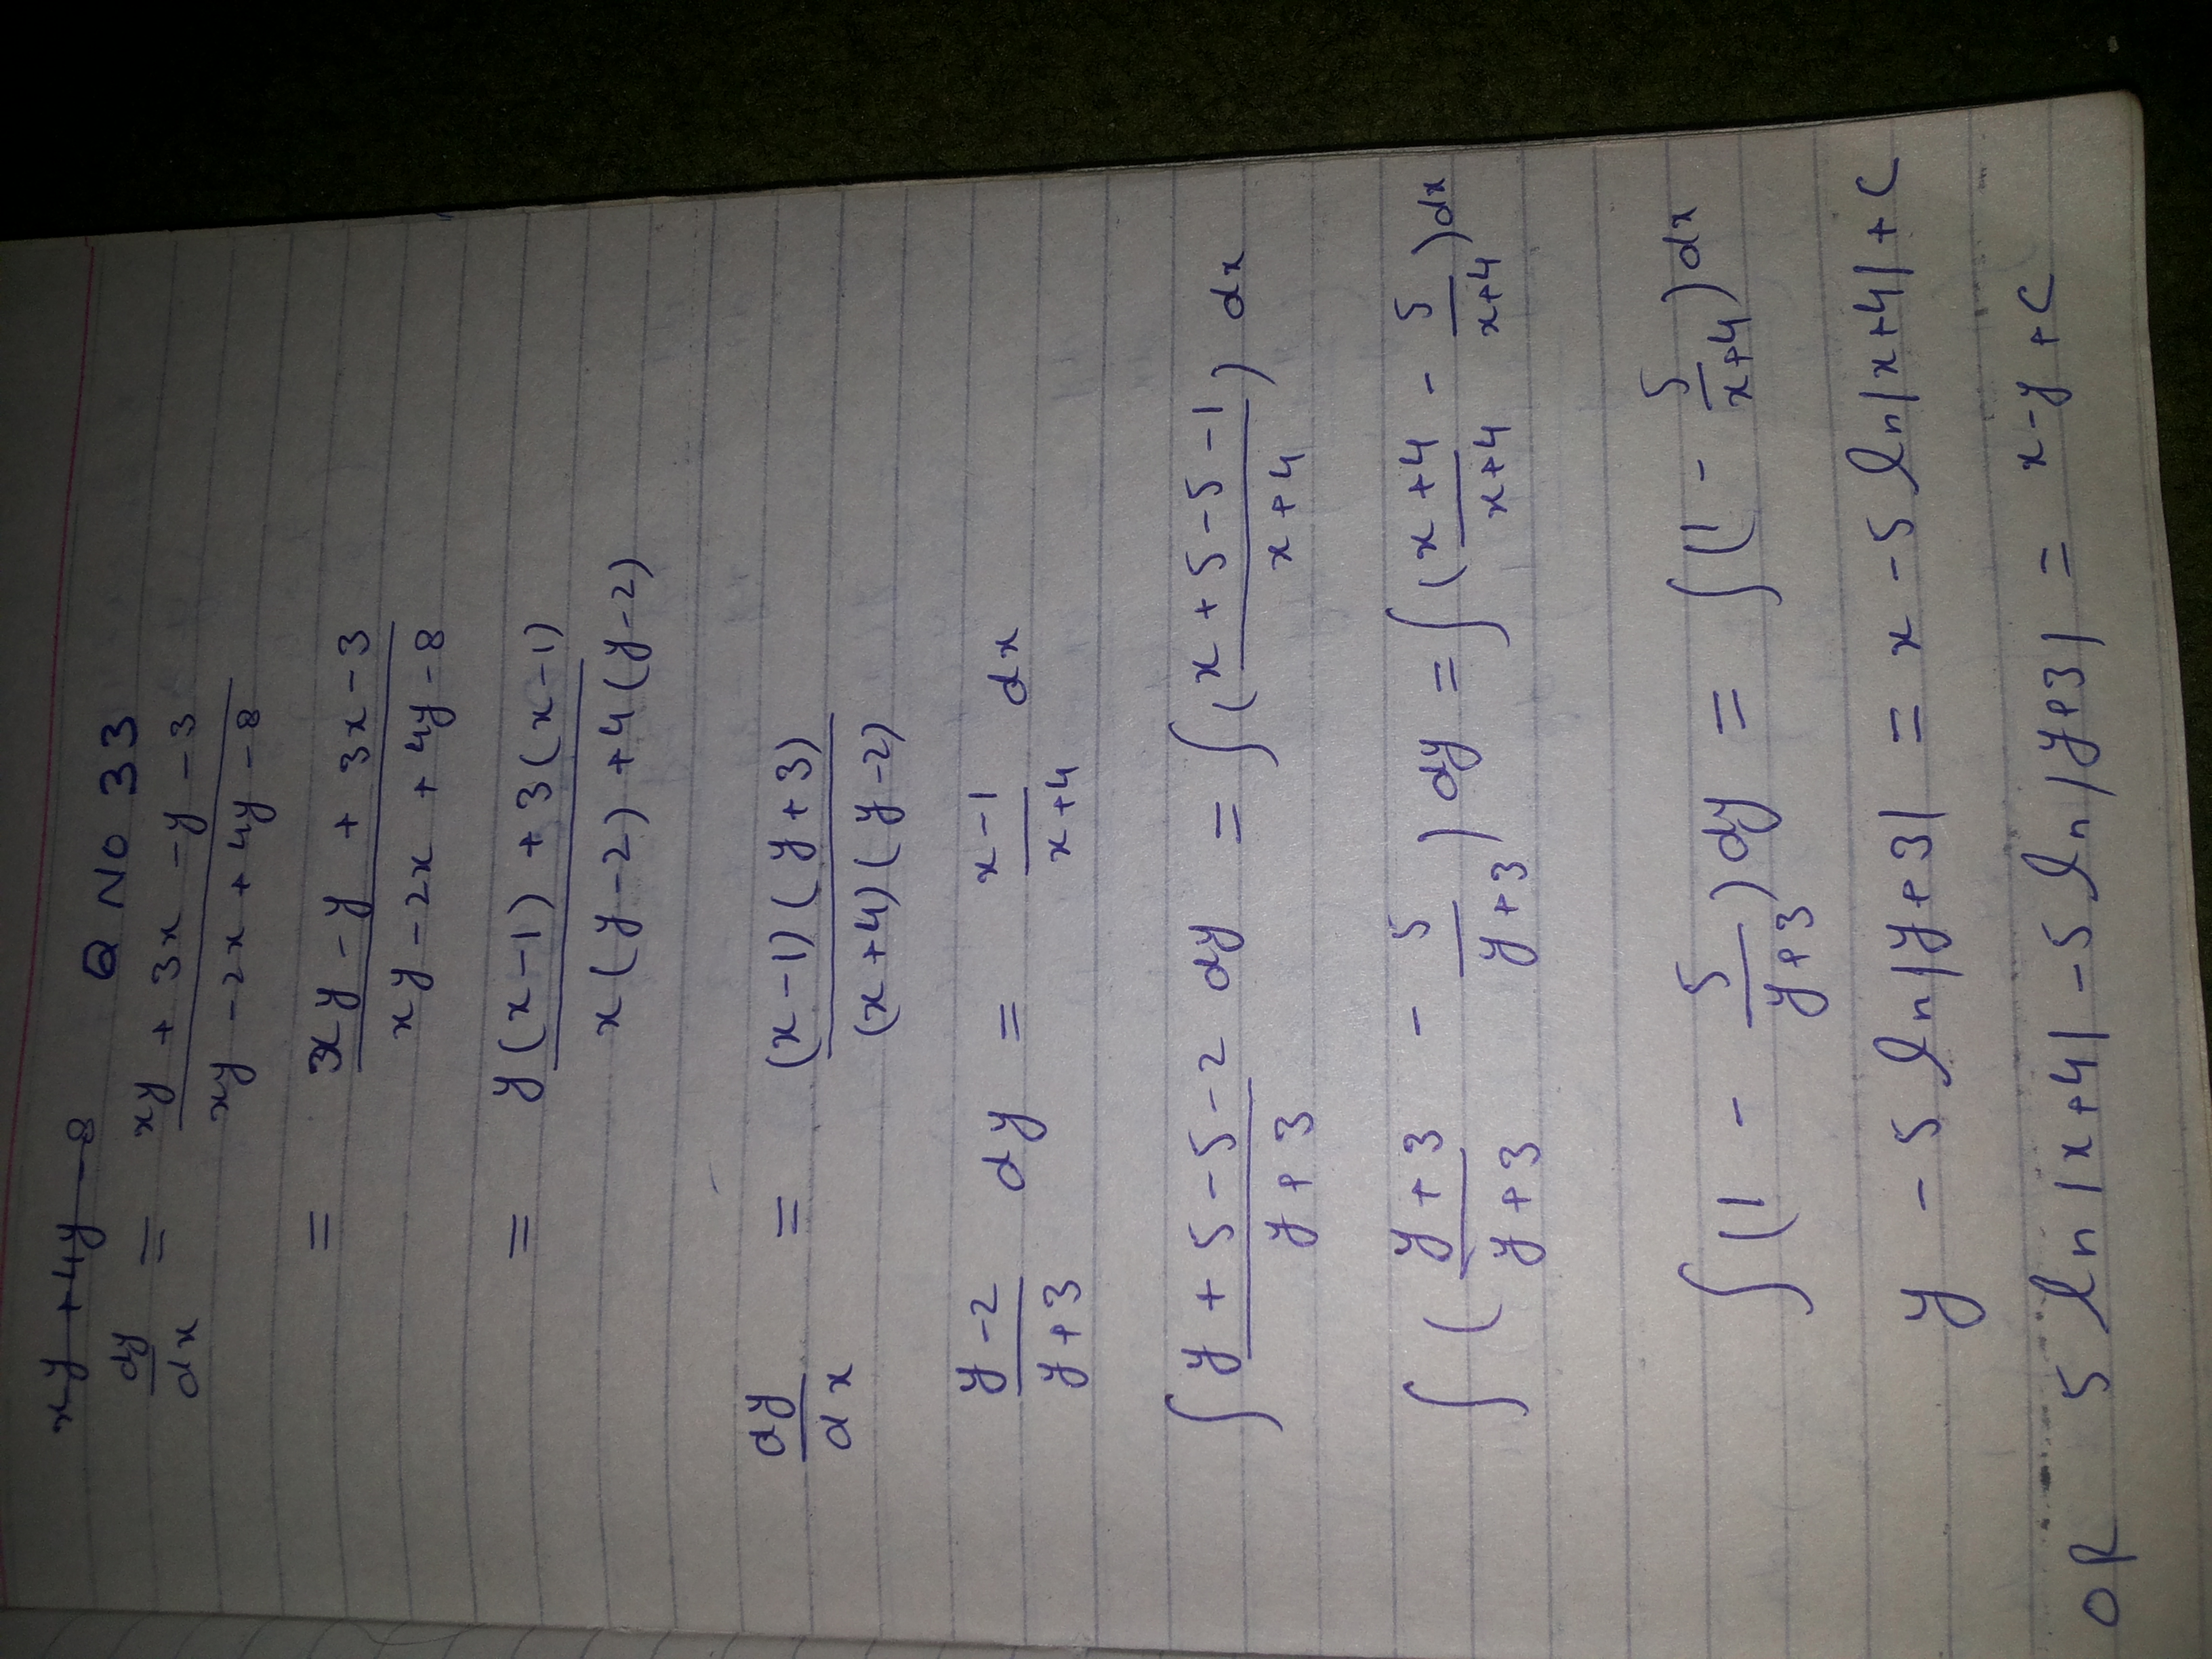 xy + 4y - 8
Q No 33
dy/dx = (xy + 3x - y - 3)/(xy - 2x + 4y - 8)
= (3xy - y + 3x - 3)/(xy - 2x + 4y - 8)
= (y(x-1) + 3(x-1))/(x(y-2) + 4(y-2))
dy/dx = ((x-1)(y+3))/((x+4)(y-2))
(y-2)/(y+3) dy = (x-1)/(x+4) dx
∫ (y+5-5-2)/(y+3) dy = ∫ ((x+5-5-1)/(x+4)) dx
∫ ((y+3)/(y+3) - 5/(y+3)) dy = ∫ ((x+4)/(x+4) - 5/(x+4)) dx
∫ (1 - 5/(y+3)) dy = ∫ (1 - 5/(x+4)) dx
y - 5 ln|y+3| = x - 5 ln|x+4| + C
OR 5 ln|x+4| - 5 ln|y+3| = x - y + C